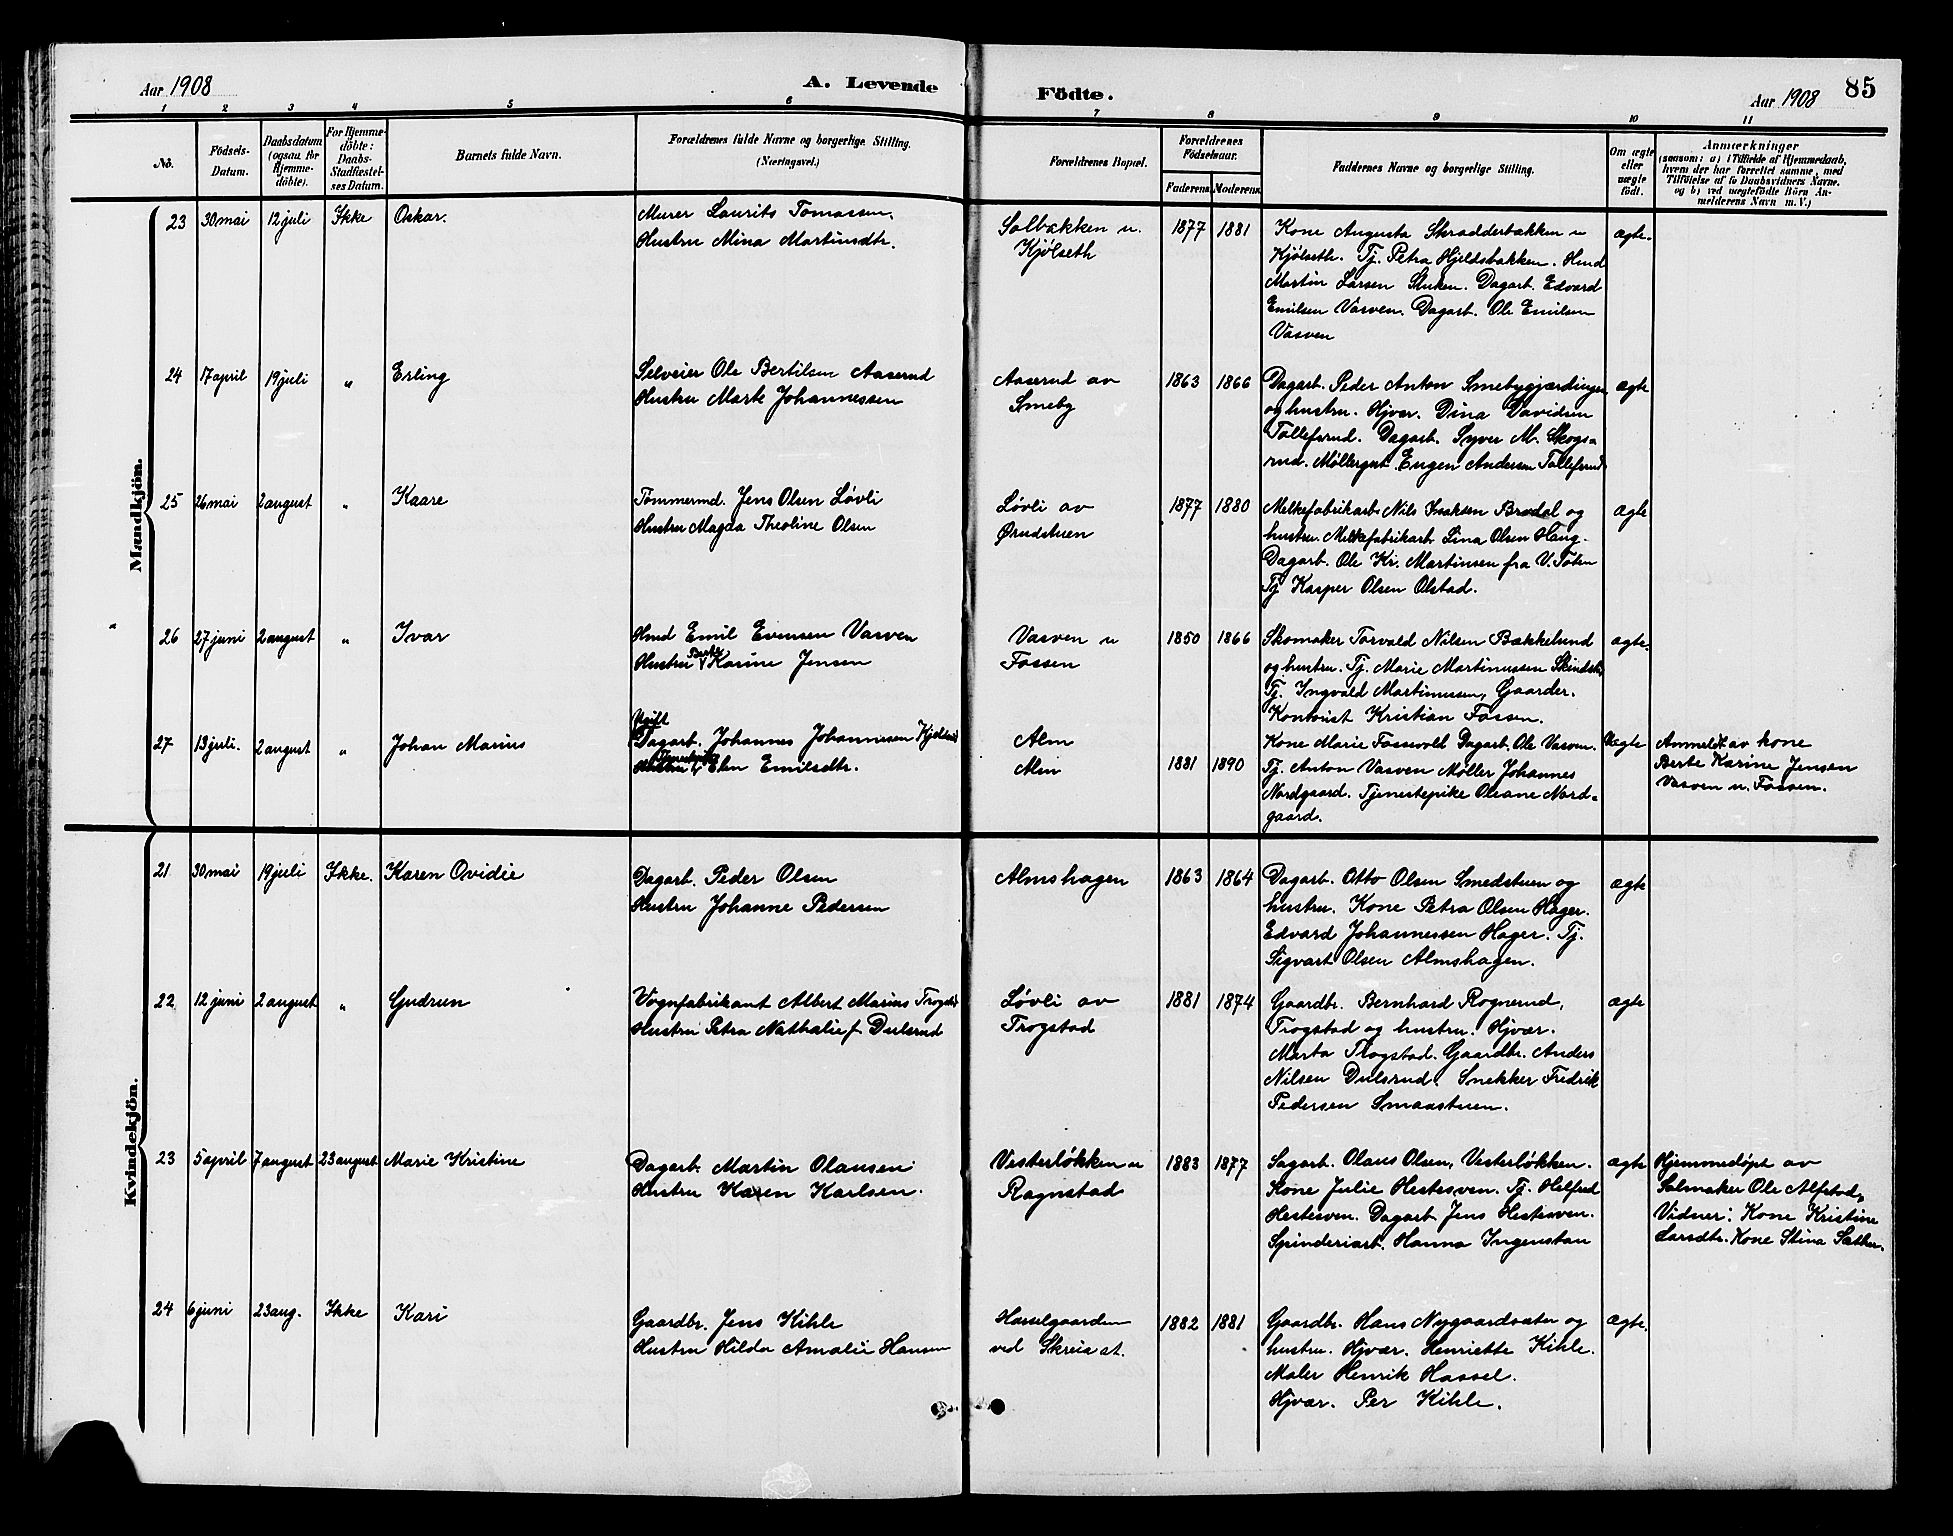 Aar 1908
A. Levende
Födte.
Aar 1908
85
1 2 3 4 5 6 7 8 9 10 11
No.
Födsels-
Datum.
Daabsdatum
(ogsaa for
Hjemme-
döbte).
For Hjemme-
döbte:
Daabs-
Stadfæstel-
ses Datum.
Barnets fulde Navn.
Forældrenes fulde Navne og borgerlige Stilling.
(Næringsvei.)
Forældrenes Bopæl.
Forældrenes
Födselsaar.
Faderens. Moderens.
Faddernes Navne og borgerlige Stilling.
Om ægte
eller
uægte
födt.
Anmærkninger
(saasom: a) i Tilfælde af Hjemmedaab,
hvem der har forrettet samme, med
Tilföielse af to Daabsvidners Navne.
og b) ved uægtefödte Börn An-
melderens Navn m. V.)
Mandkjön.
23 30 mai 12 juli Ikke Oskar.
Murer Laurits Tomassen.
Hustru Mina Martinsdtr.
Solbakken u.
Kjölseth
1877 1881
Kone Augusta Skradderbakken u
Kjölseth. Tj. Petra Hjeldsbakken. Hmd
Martin Larsen Stuken. Dagarb. Edvard
Emilsen Vasven. Dagarb. Ole Emilsen
Vasven
ægte.
24 17 april 19 juli " Erling
Selveier Ole Bertilsen Aaserud
Hustru Marte Johannessen
Aaserud av
Smeby
1863 1866
Dagarb. Peder Anton Smebygjærdingen
og hustru. Hjvær. Dina Davidsen
Tollefsrud. Dagarb. Syver M. Skogs-
rud. Møllergut Eugen Andersen Tollefsrud
ægte
25 26 mai 2 august " Kaare
Tømmermd. Jens Olsen Løvli
Hustru Magda Theoline Olsen
Løvli av
Ørudstuen
1877 1880
Melkefabrikarb. Nils Isaksen Brødal og
hustru. Melkefabrikarb. Lina Olsen Haug.
Dagarb. Ole Kr. Martinsen fra V. Toten
Tj Kasper Olsen Olstad.
ægte
26 27 juni 2 august " Ivar
Hmd Emil Evensen Vasven
Hustru Berte Karine Jensen
Vasven u
Fossen
1850 1866
Skomaker Torvald Nilsen Bækkelund
og hustru. Tj. Marie Martinussen
Tj. Ingvald Martinussen, Gaarder.
Kontorist Kristian Fossen.
ægte.
27 13 juli. 2 august " Johan Marius
Ugift
Dagarb. Johannes Johannessen
Elen Emilsdtr.
Alm
Alm
1881 1890
Kone Marie Fossevold Dagarb. Ole Vasven.
Tj. Anton Vasven Møller Johannes
Nordgaard. Tjenestepike Oleane Nord-
gaard.
Uægte
Anmeldt av kone
Berte Karine Jensen
Vasven u. Fossen.
Kvindekjön.
21 30 mai 19 juli Ikke. Karen Ovidie
Dagarb. Peder Olsen
Hustru Johanne Pedersen
Almshagen
1863 1864
Dagarb. Otto Olsen Smedstuen og
hustru. Kone Petra Olsen Hager.
Edvard Johannessen Hager. Tj.
Sigvart Olsen Almshagen.
ægte
22 12 juni 2 august " Gudrun
Vognfabrikant Albert Marius Trogstad
Hustru Petra Nathalie f. Dulsrud
Løvli av
Trogstad
1881 1874
Gaardbr. Bernhard Rognerud,
Trogstad og hustru. Hjvær.
Marta Trogstad. Gaardbr. Anders
Nilsen Dulsrud. Snekker Fredrik
Pedersen Smaastuen.
ægte
23 5 april 7 august 23 august Marie Kristine
Dagarb. Martin Olausen
Hustru Karen Karlsen.
Vesterløkken u
Rognstad
1883 1877
Sagarb. Olaus Olsen, Vesterløkken.
Kone Julie Hestesven. Tj. Helfred
Hestesven. Dagarb. Jens Hestesven.
Spinderiarb. Hanna Ingenstau
ægte
Hjemmedøpt av
Salmaker Ole Alfstad,
Vidner: Kone Kristine
Larsdtr. Kone Stina Sæther.
24 6 juni 23 aug. Ikke Kari
Gaardbr. Jens Kihle
Hustru Hilda Amalie Hansen
Hasselgaarden
ved Skreia st.
1882 1881
Gaardbr. Hans Nygaardsæter og
hustru. Hjvær. Henriette Kihle.
Maler Henrik Hassel.
Hjvær. Per Kihle.
ægte.